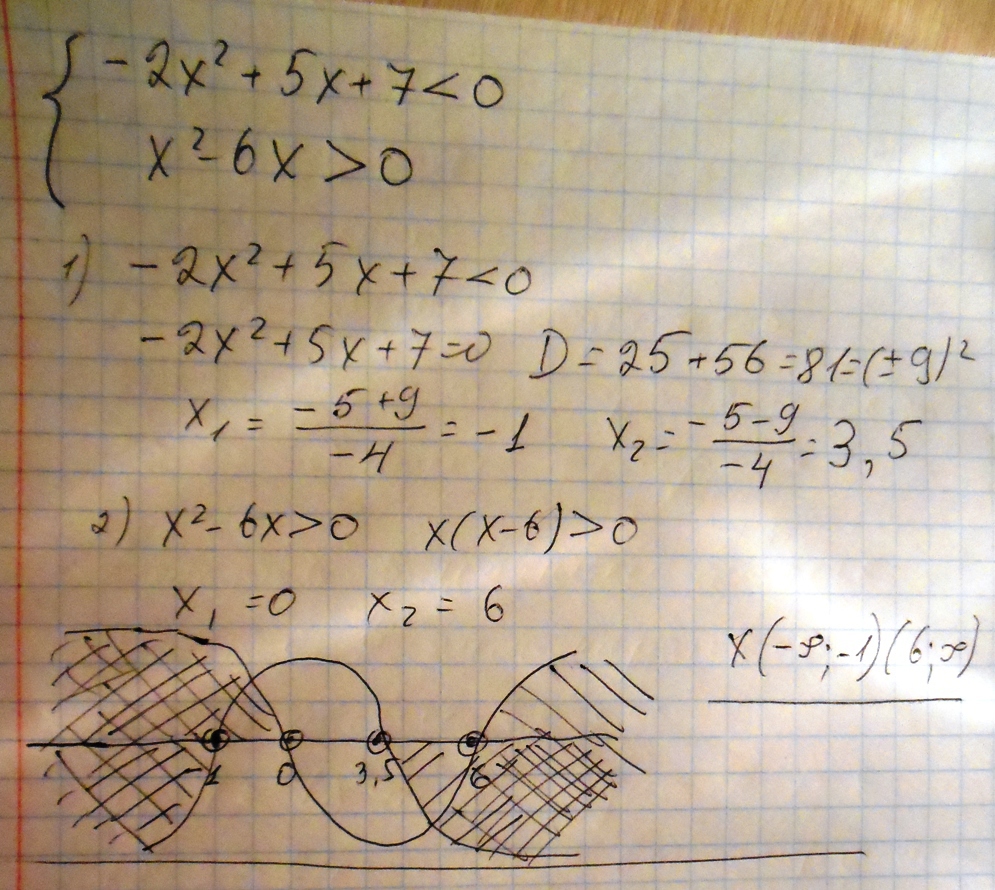 -2x²+5x+7<0
x²-6x>0
1) -2x²+5x+7<0
-2x²+5x+7=0 D=25+56=81=(±9)²
x₁ = (-5+9)/(-4) = -1 x₂ = (-5-9)/(-4) = 3,5
2) x²-6x>0 x(x-6)>0
x₁ =0 x₂ = 6
x(-∞;-1)(6;∞)
-1 0 3,5 6